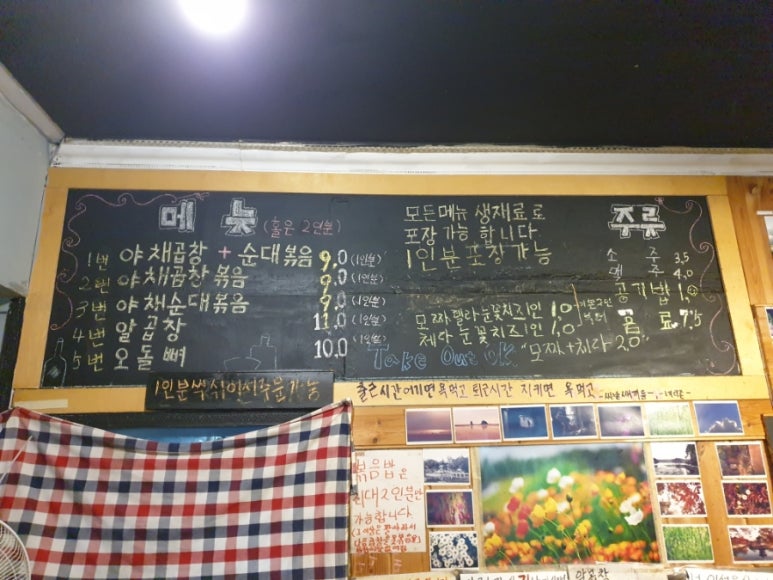 메 늇 (홀은 2인분)
1번 야채곱창 + 순대볶음 9.0 (1인분)
2번 야채곱창볶음 9.0 (1인분)
3번 야채순대볶음 9.0 (1인분)
4번 알곱창 11.0 (1인분)
5번 오돌뼈 10.0 (1인분)
모든메뉴 생재료로
포장가능 합니다
1인분포장가능
모짜렐라눈꽃치즈1인 1.0
체다눈꽃치즈1인 1.0
Take Out OK "모짜+치다 2.0"
주류
소 주 3.5
맥 주 4.0
공기밥 1.
음 료
출근시간어기면 욕먹고 퇴근시간 지키면 욕먹고
볶음밥은
최대2인분만
가능합니다